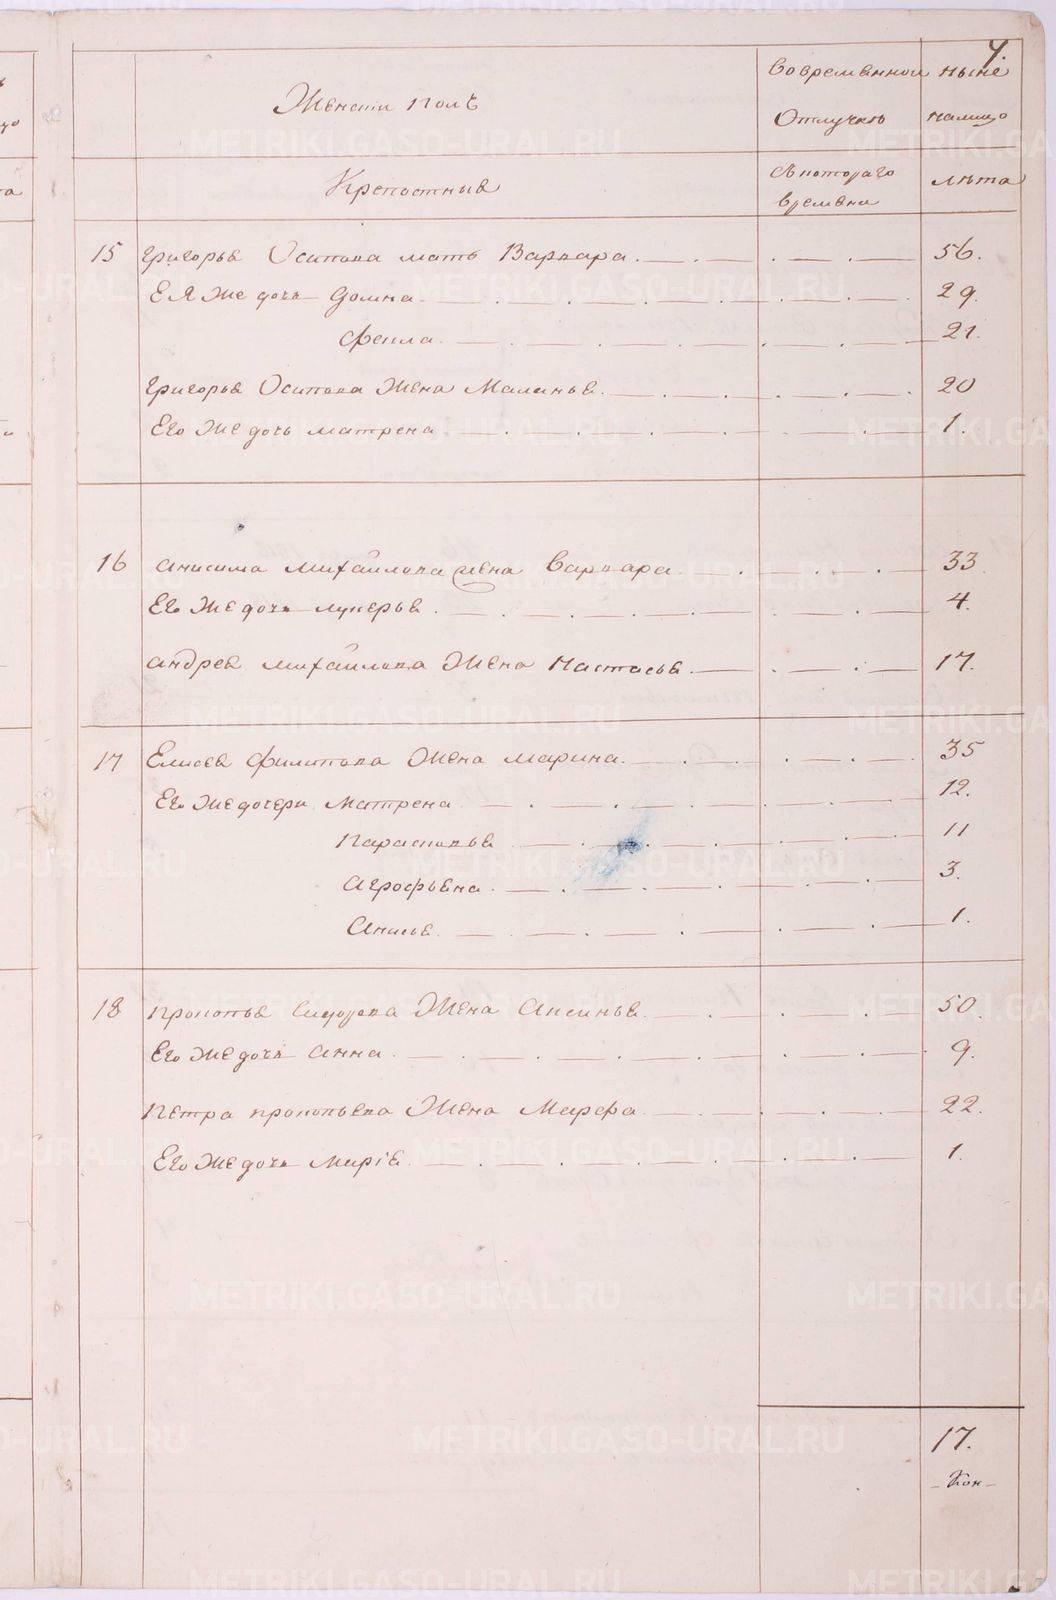 7.
Женский полъ
Во временной
Отлучке
ныне
налицо
Крепостные
Съ котораго
времени
лета
15 Григорья Осипова мать Варвара 56.
Ея же дочь Домна 29.
Фекла 21.
Григорья Осипова жена Маланья 20
Его же дочь Матрена 1.
16 Анисима Михайлова жена Варвара 33.
Его же дочь Лукерья 4.
Андрея Михайлова жена Настасья 17.
17 Елисея Филипова жена Марина 35
Его же дочери Матрена 12.
Парасковья 11
Агрофьена 3.
Анисья 1.
18 Прокопья Сидорова жена Аксинья 50.
Его же дочь Анна 9.
Петра Прокопьева жена Марфа 22.
Его же дочь Марія 1.
17.
Кон-
METRIKI.GASO-URAL.RU